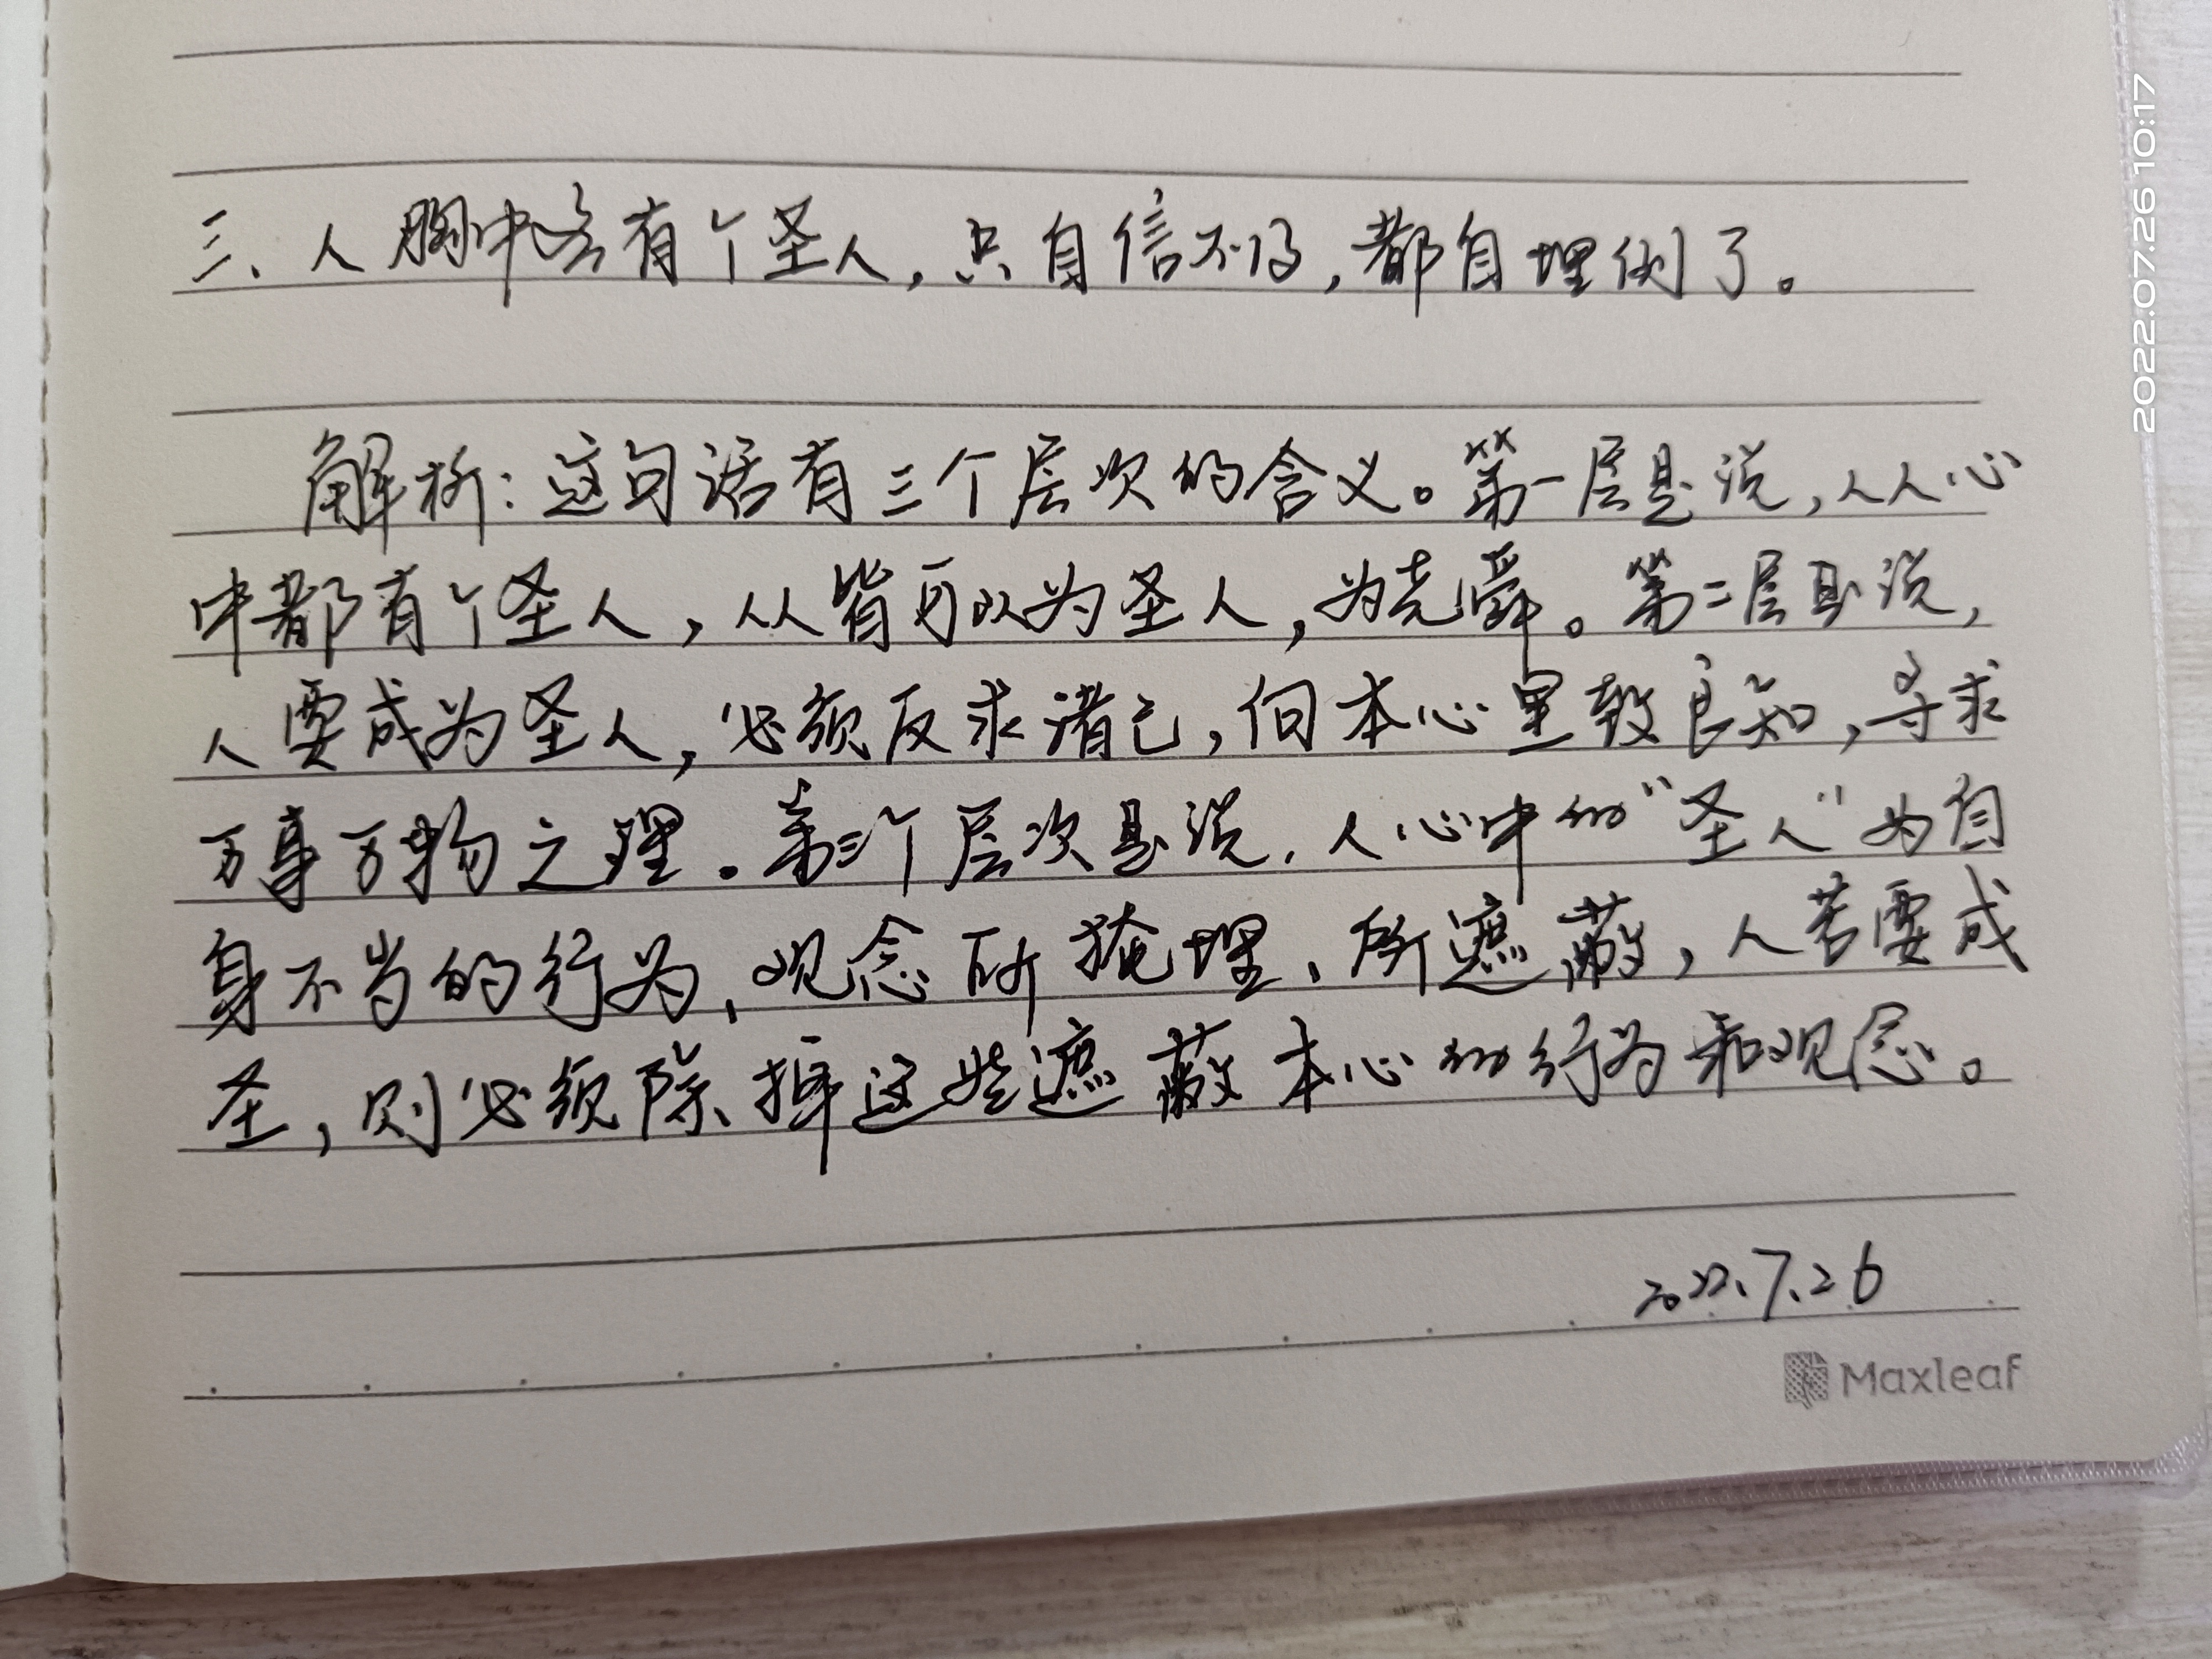 三、人胸中各有个圣人，只自信不得，都自埋倒了。
解析：这句话有三个层次的含义。第一层是说，人人心
中都有个圣人，人人皆可以为圣人，为尧舜。第二层是说，
人要成为圣人，必须反求诸己，向本心里致良知，寻求
万事万物之理。第三个层次是说，人心中的“圣人”为自
身不当的行为、观念所掩埋、所遮蔽，人若要成
圣，则必须除掉这些遮蔽本心的行为和观念。
2022.7.26
Maxleaf
2022.07.26 10:17